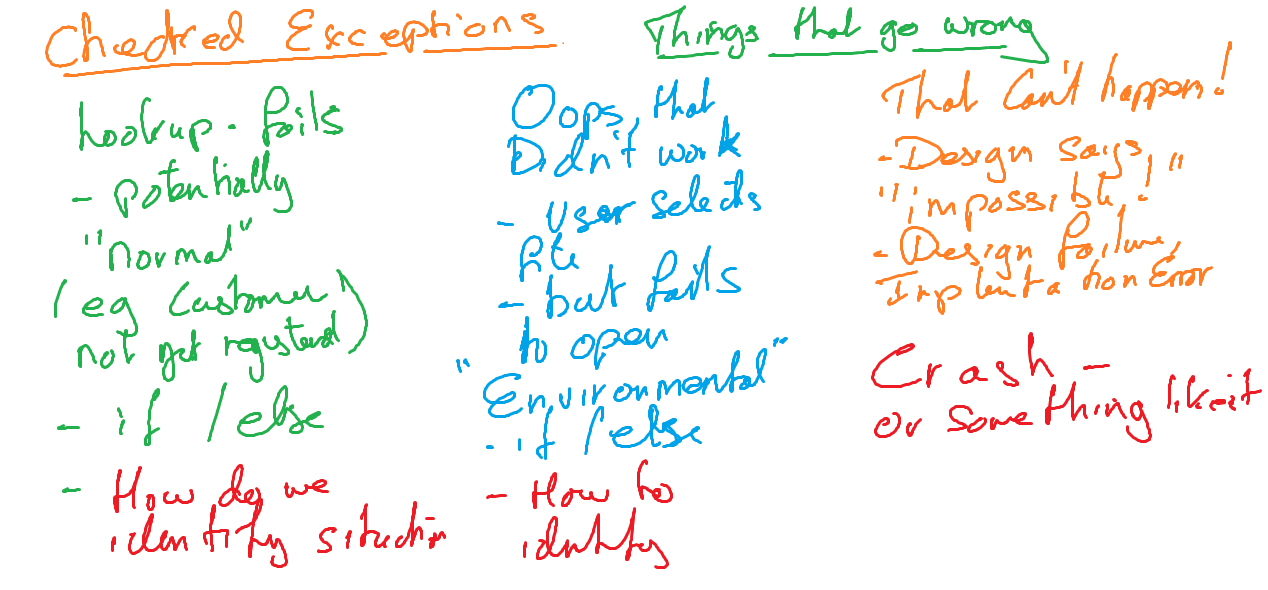 Checked Exceptions
Things that go wrong
lookup - fails
- potentially
"normal"
(eg Customer
not yet registered)
- if / else
- How do we
identify situation
Oops, that
Didn't work
- User selects
file
- but fails
to open
"Environmental"
- if / else
- How to
identify
That Can't happen!
- Design says,
"impossible!"
- Design failure,
Implentation Error
Crash -
or something like it